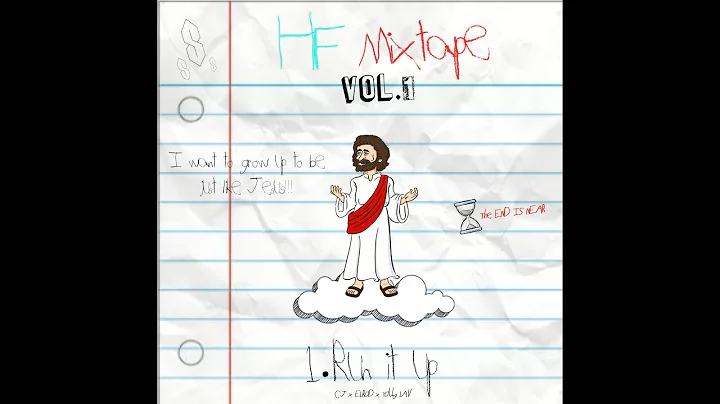 HF Mixtape
VOL.1
I want to grow up to be
just like Jesus!!!
THE END IS NEAR
1. Run it Up